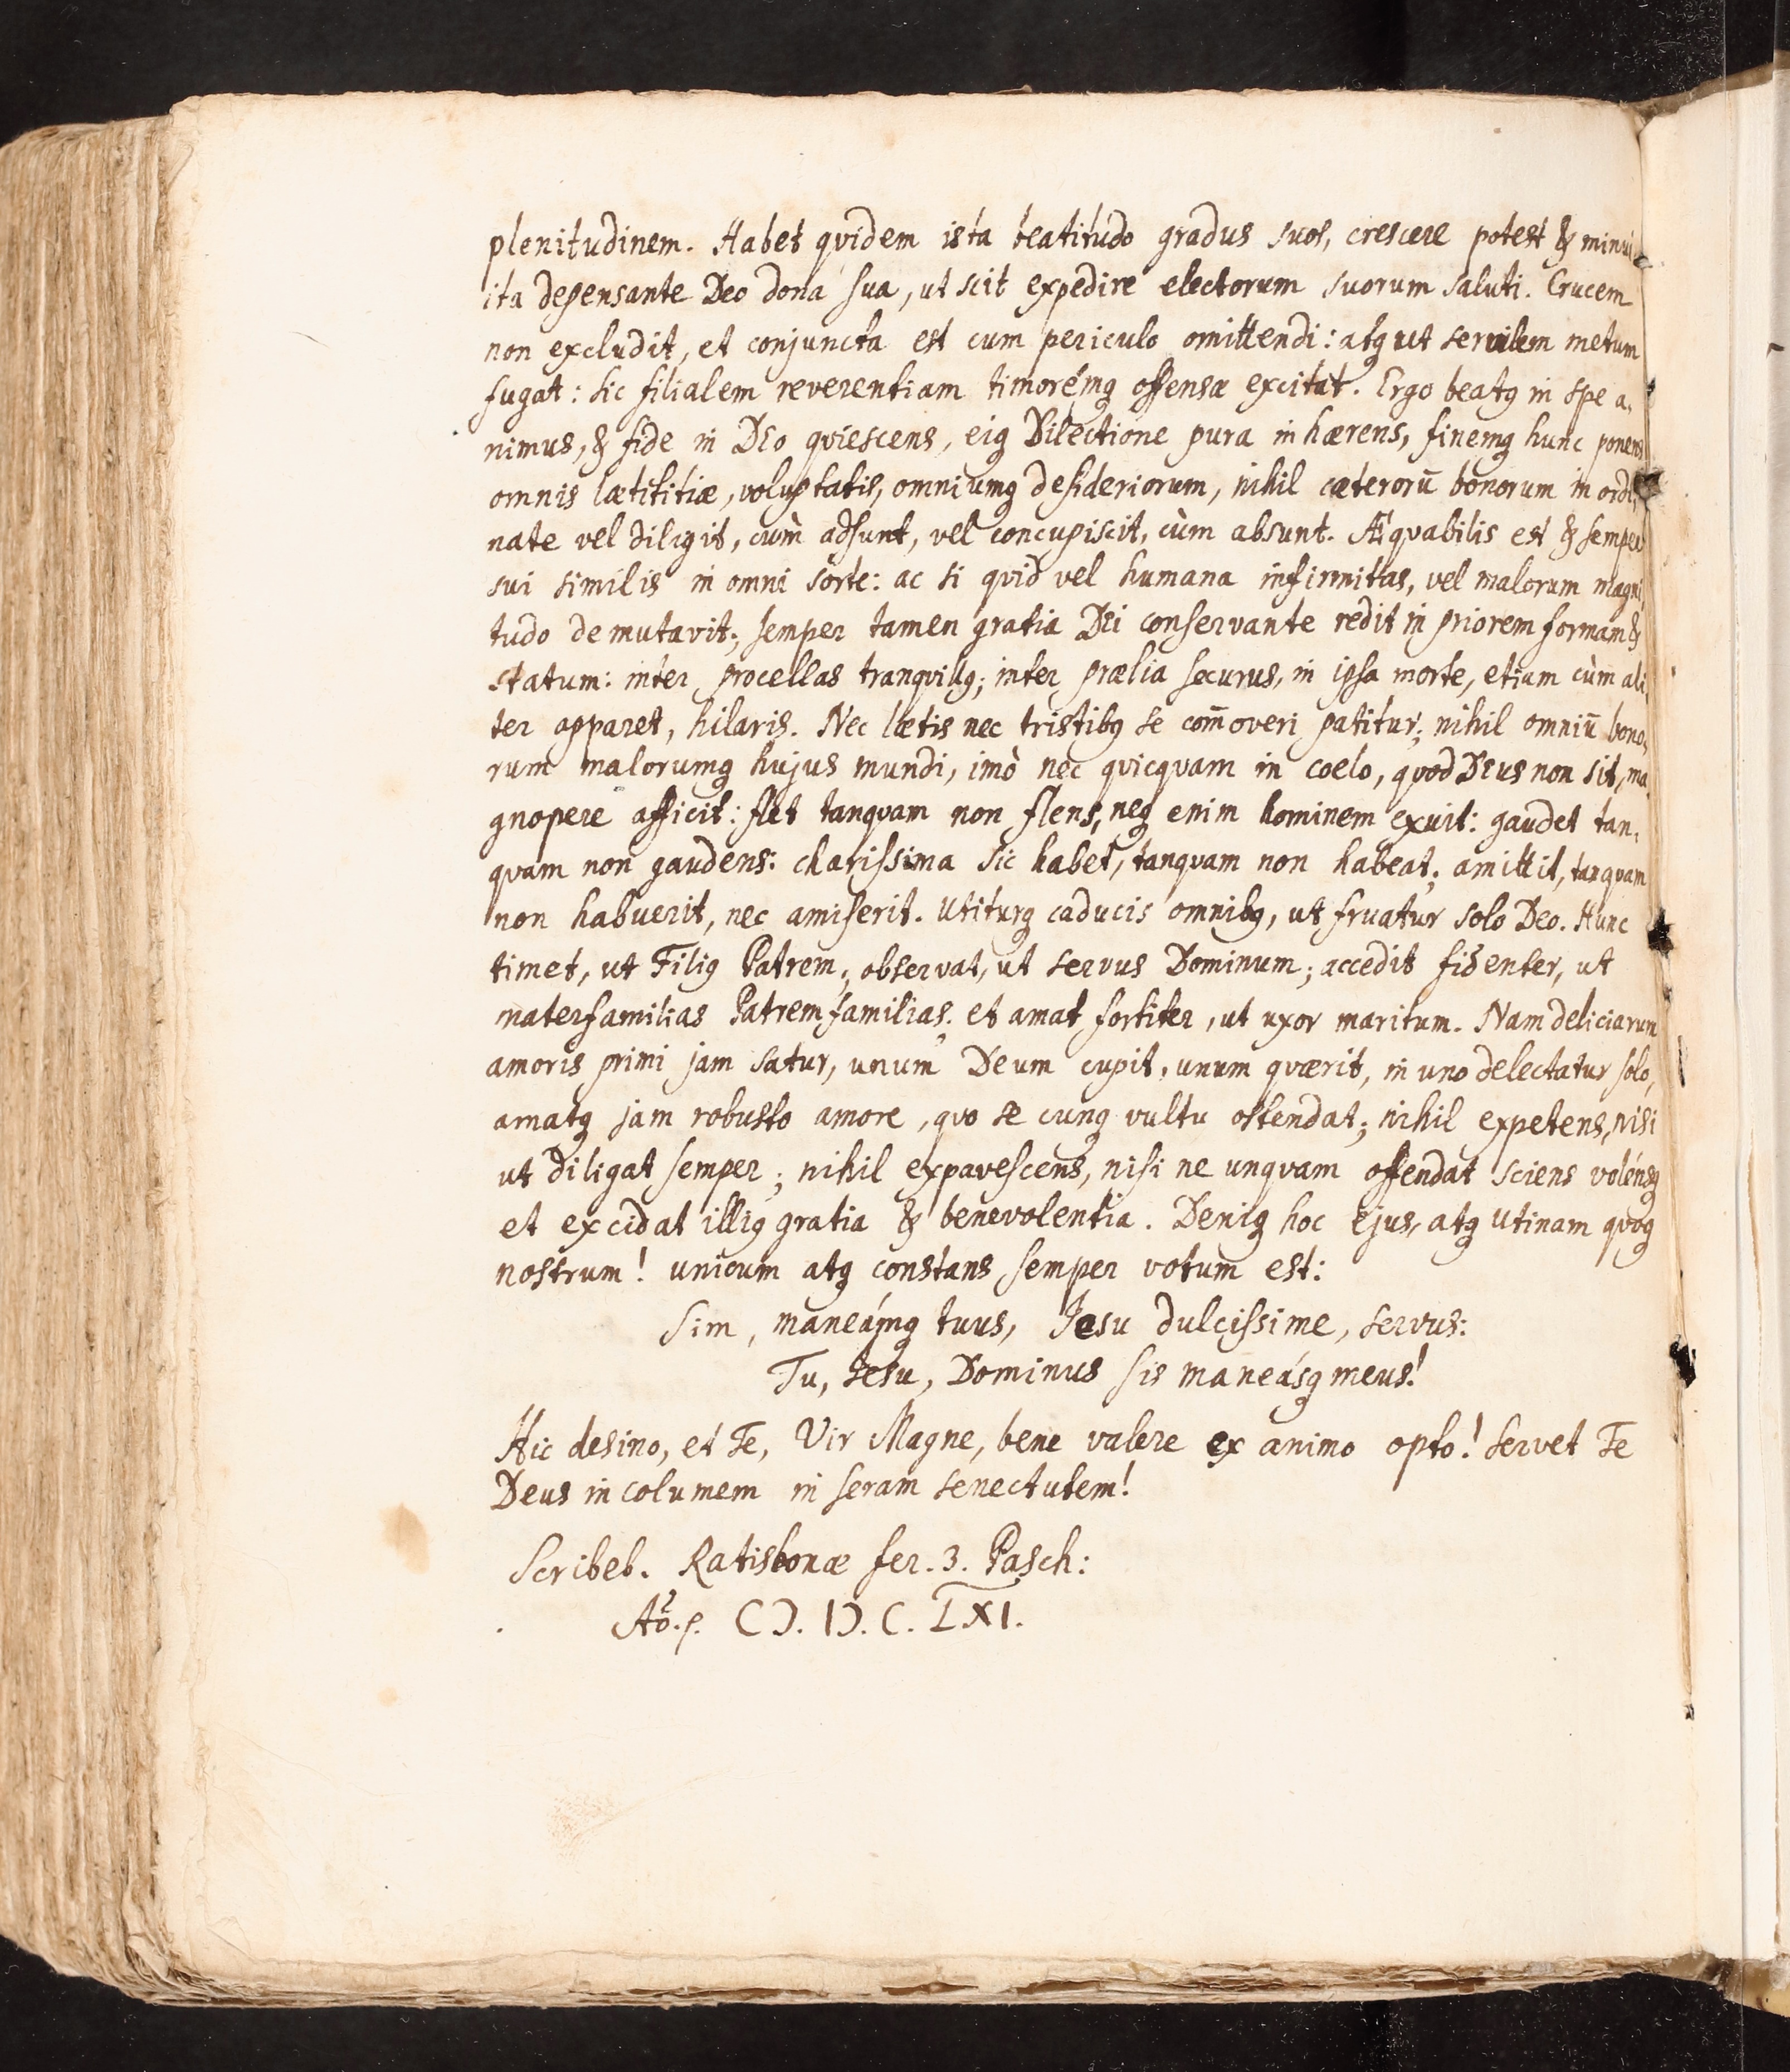 plenitudinem. Habet qvidem ista beatitudo gradus suos, crescere potest & minui
ita depensante Deo dona sua, ut scit expedire electorum suorum saluti. Crucem
non excludit, et conjuncta est cum periculo omittendi: atqꝫ ut servilem metum
fugat: sic filialem reverentiam timorémqꝫ offensæ excitat. Ergo beatꝰ in spe a-
nimus, & fide in DEo qviescens, eiqꝫ Dilectione pura inhærens, finemqꝫ hunc ponens
omnis lætititiæ, voluptatis, omniumqꝫ desideriorum, nihil cæterorū bonorum inordi-
nate vel diligit, cùm adsunt, vel concupiscit, cùm absunt. Æqvabilis est & semper
sui similis in omni sorte: ac si qvid vel humana infirmitas, vel malorum magni-
tudo demutavit; semper tamen gratia DEi conservante redit in priorem formam &
statum: inter procellas tranqvillꝰ; inter prælia securus, in ipsa morte, etiam cùm ali-
ter apparet, hilaris. Nec lætis nec tristibꝰ se com̄overi patitur; nihil omniū bono-
rum malorumqꝫ hujus mundi, imò nec qvicqvam in coelo, qvod DEus non sit, ma-
gnopere afficit: flet tanqvam non flens, neqꝫ enim hominem exuit: gaudet tan-
qvam non gaudens: charissima sic habet, tanqvam non habeat; amittit, tanqvam
non habuerit, nec amiserit. Utiturqꝫ caducis omnibꝰ, ut fruatur solo Deo. Hunc
timet, ut Filiꝰ Patrem; observat, ut servus Dominum; accedit fidenter, ut
materfamilias Patremfamilias; et amat fortiter, ut uxor maritum. Nam deliciarum
amoris primi jam satur, unum Deum cupit, unum qværit, in uno delectatur solo,
amatqꝫ jam robusto amore, qvo se cunqꝫ vultu ostendat; nihil expetens, nisi
ut diligat semper; nihil expavescens, nisi ne unqvam offendat sciens volénsqꝫ
et excidat illiꝰ gratia & benevolentia. Deniqꝫ hoc ejus, atqꝫ utinam qvoqꝫ
nostrum! unicum atqꝫ constans semper votum est:
Sim, maneámqꝫ tuus, Jesu dulcissime, servus:
Tu, Jesu, Dominus sis maneásqꝫ meus!
Hic desino, et Te, Vir Magne, bene valere ex animo opto! Servet Te
Deus incolumem in seram senectutem!
Scribeb. Ratisbonæ fer. 3. Pasch:
Aō. CIƆ. IƆ. C. LXI.